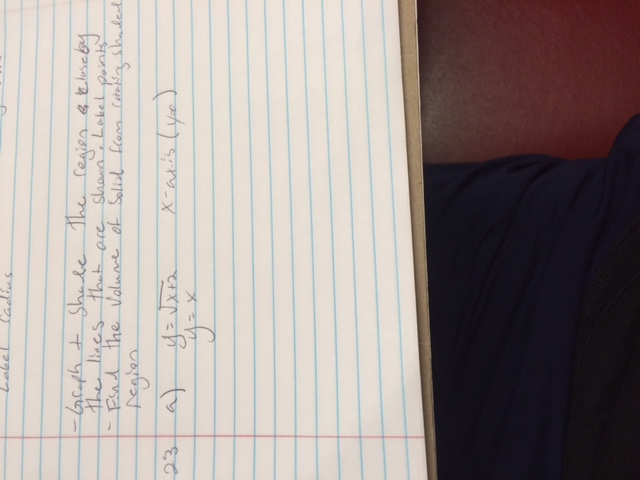 Label radius
- Graph + Shade the region enclosed by
the lines that are shown. Label points
- Find the Volume of Solid from rotating shaded
region
23 a) y=√x+2 x-axis (y=0)
y = x